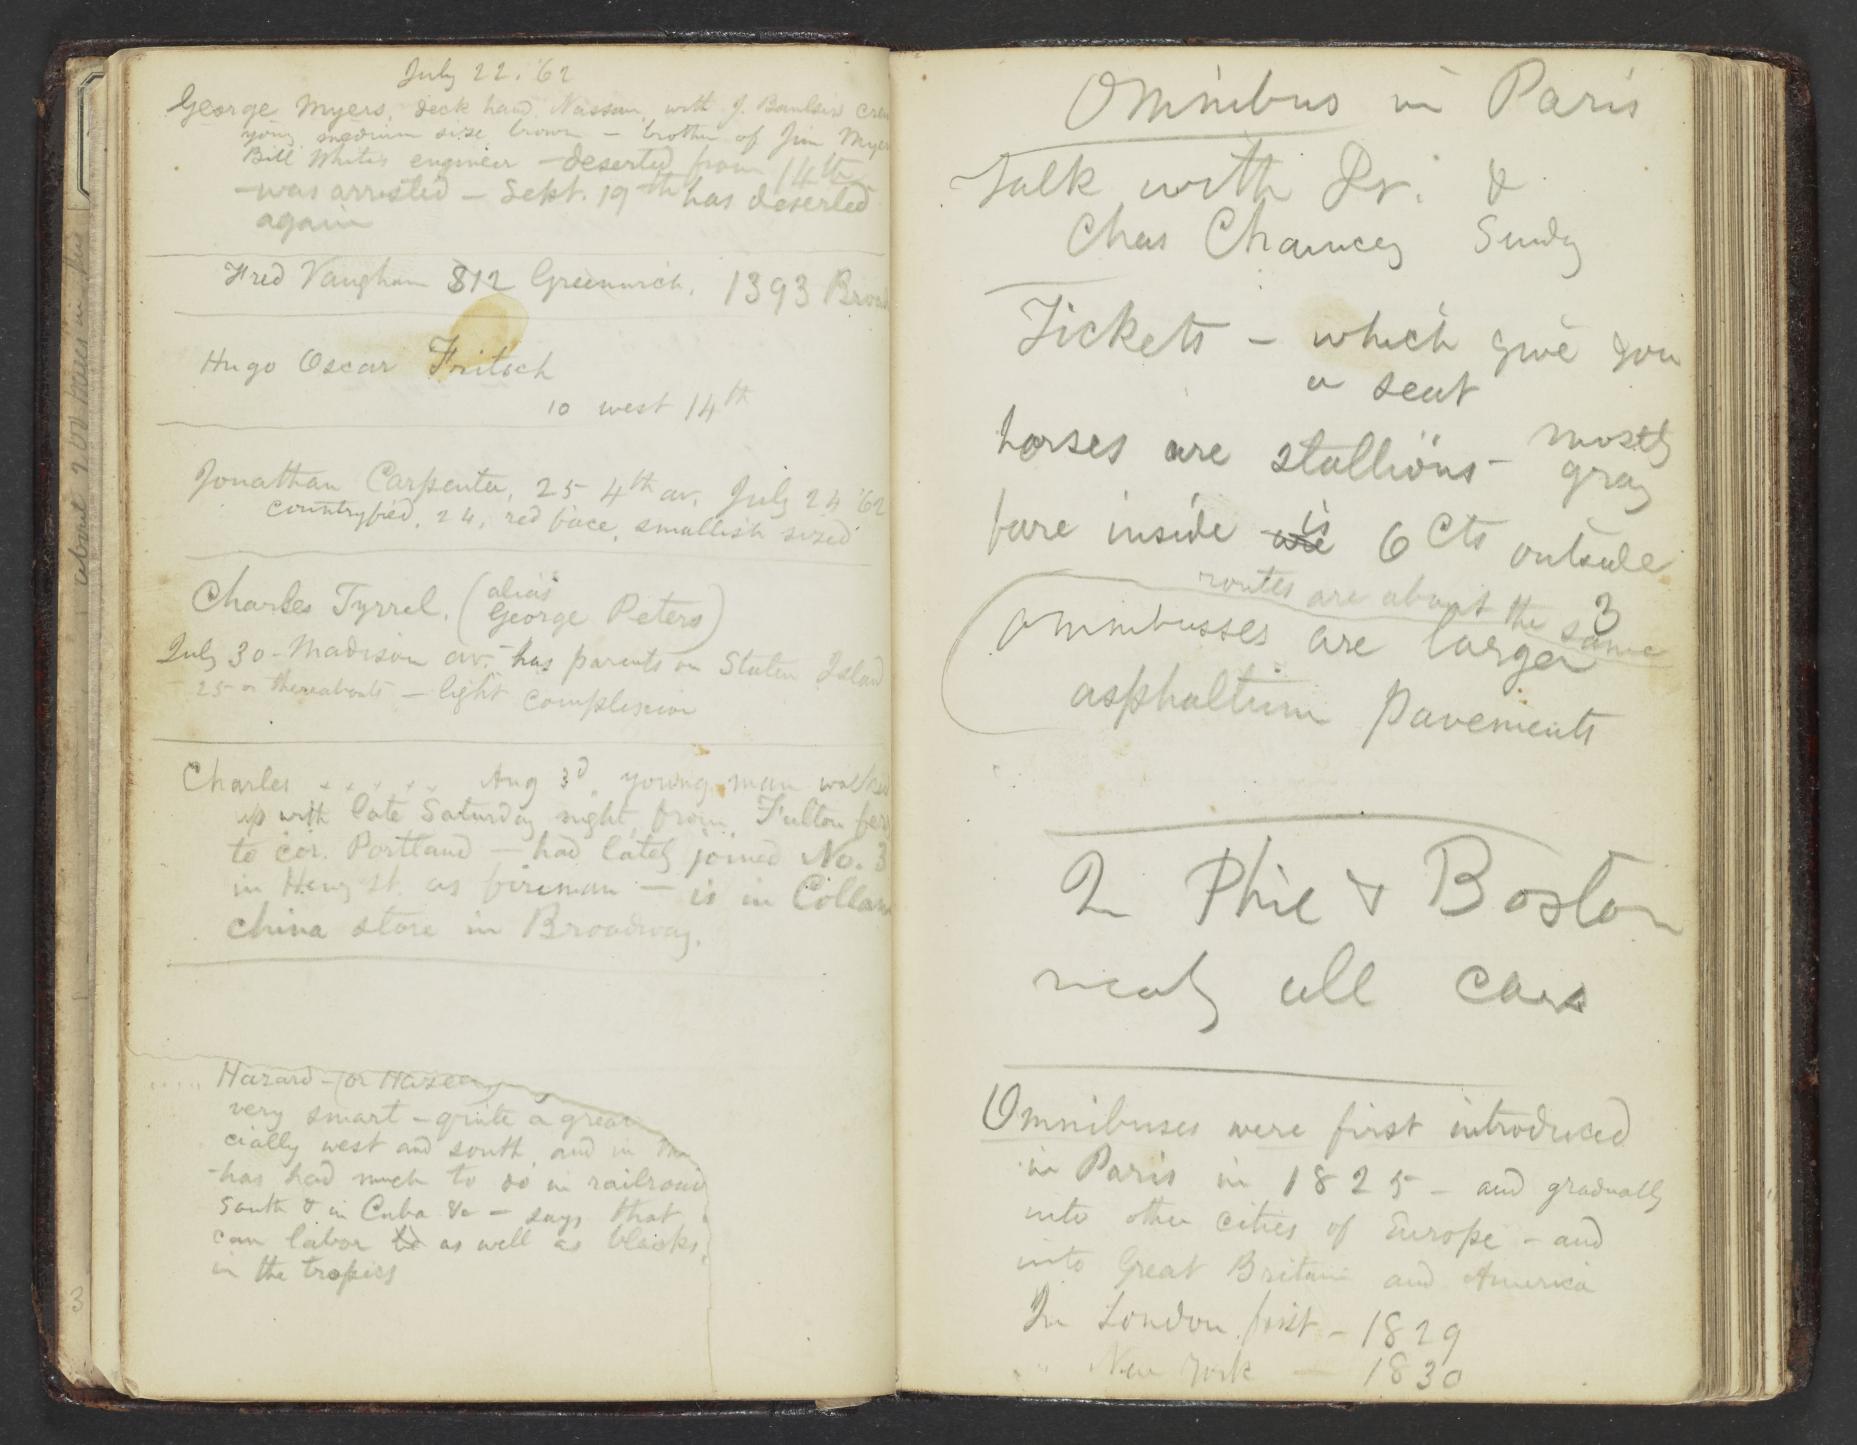 July 22. '62
George Myers, deck hand Nassau, with J. Baulsir
young medium size brown – brother of Jim
Bill Whites engineer – deserted from 14th
– was arrested – Sept. 19th has deserted
again
Fred Vaughan 812 Greenwich. 1393
Hugo Oscar Fritsch
10 west 14th
Jonathan Carpenter, 25 4th av. July 24 '62
countryfied, 24, red face, smallish sized
Charles Tyrrel. (alias
George Peters)
July 30 – Madison av. – has parents on Staten Island
25 or thereabouts – light complexion
Charles . . . . . Aug 3d, young man walked
up with late Saturday night, from Fulton
to cor. Portland – had lately joined No. 3
in Henry st. as fireman – is in
china store in Broadway.
Hazard – (or Hazen)
very smart – quite a great
cially west and south, and in
– has had much to do in railroad
South & in Cuba &c – says that
can labor as well as blacks
in the tropics
about 200 in this
3
Omnibus in Paris
talk with Dr. &
Chas Chauncey Sundy
Tickets – which give you
a seat
horses are stallions – mostly
gray
fare inside are is 6 cts outside
3
routes are about the same
omnibusses are larger
asphaltum pavements
In Phil & Boston
nearly all cars
Omnibuses were first introduced
in Paris in 1825 – and gradually
into other cities of Europe – and
into Great Britain and America
In London first – 1829
" New York – 1830